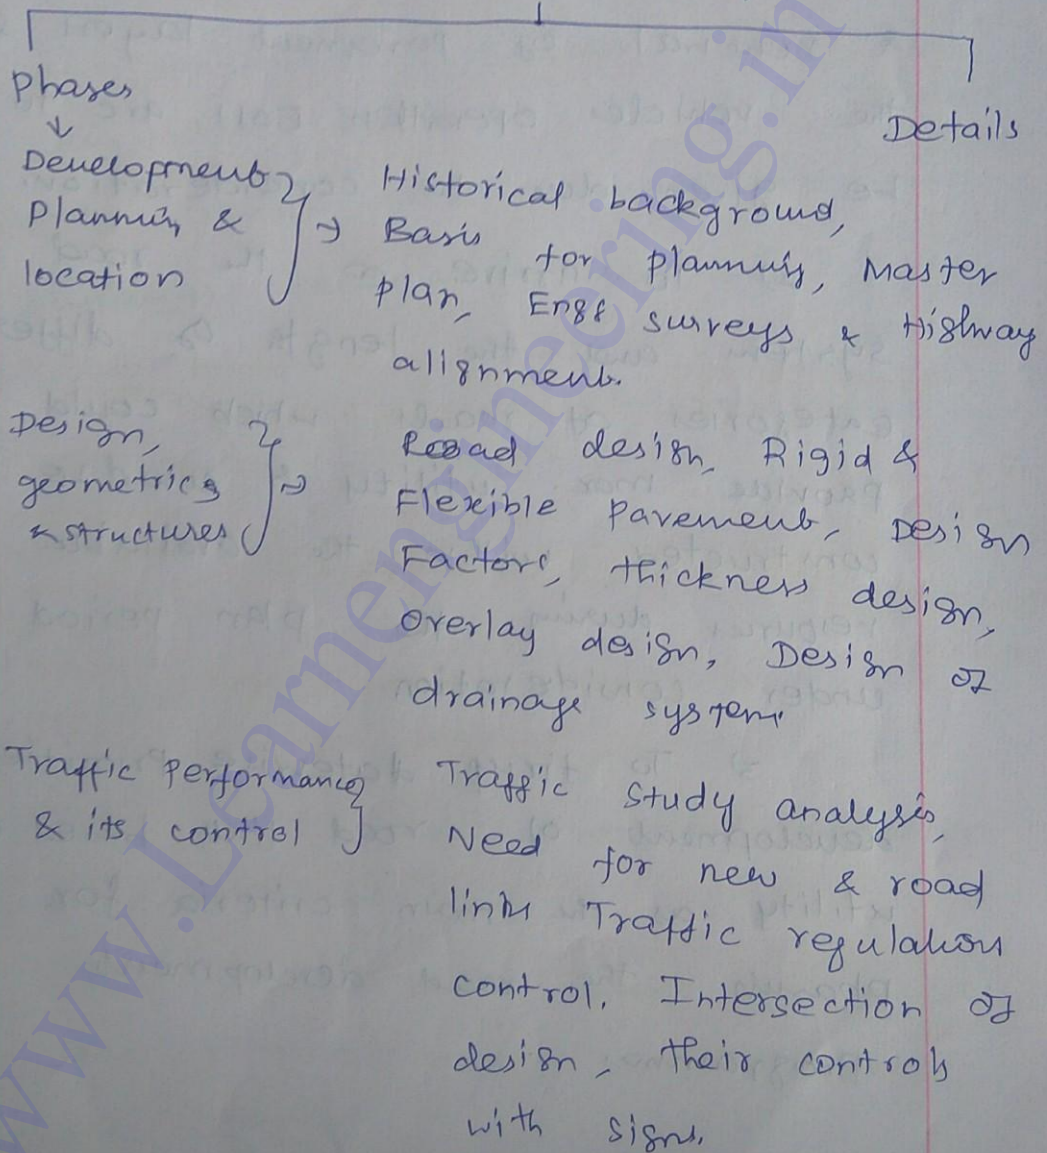 Phases
Details
Development
Planning &
location
Historical background,
Basis for planning, Master
plan, Engg surveys & Highway
alignment.
Design,
geometrics
& structures
Road design, Rigid &
Flexible Pavement, Design
Factors, thickness design,
Overlay design, Design of
drainage system.
Traffic Performance
& its control
Traffic Study analysis,
Need for new & road
links Traffic regulation
control. Intersection of
design, their controls
with signs.
www.Learnengineering.in